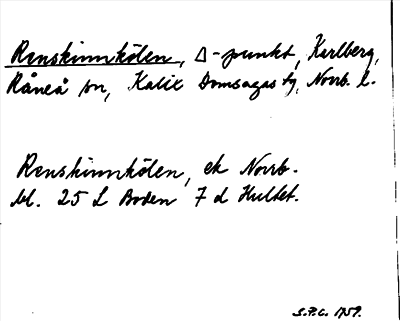 Renskinnkölen, Δ-punkt, Karlberg,
Råneå sn, Kalix Domsagas tg, Norrb. l.
Renskinnkölen, ek Norrb.
bl. 25 L Boden 7 d Hultet.
S.P.G. 1959.